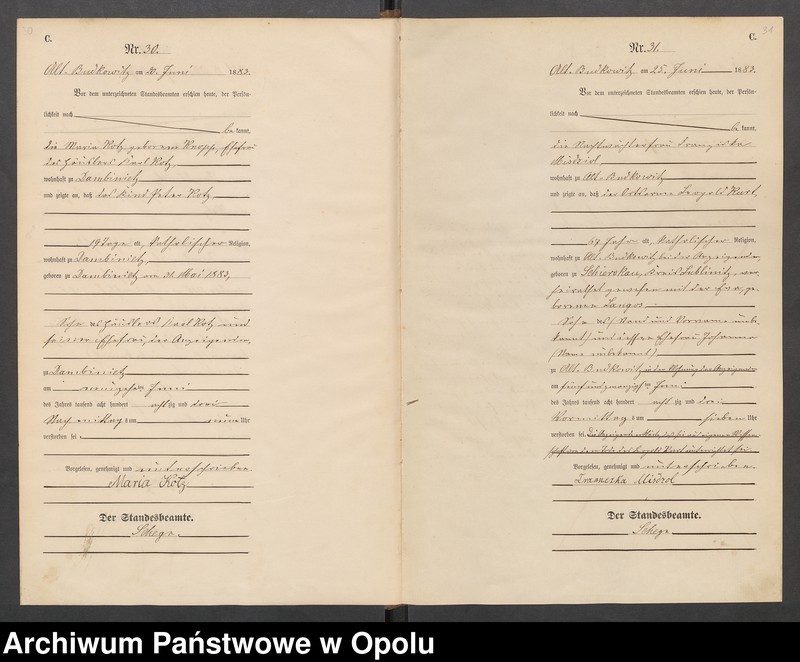 C.
Nr. 30.
Alt-Budkowitz am 20. Juni 1883.
Vor dem unterzeichneten Standesbeamten erschien heute, der Persön-
lichkeit nach
be kannt,
die Maria Kotz, geborene Knopp, Ehefrau
des Häuslers Karl Kotz,
wohnhaft zu Dambinietz
und zeigte an, daß das Kind Peter Kotz
19 Tage alt, katholischer Religion,
wohnhaft zu Dambinietz
geboren zu Dambinietz am 31. Mai 1883,
Sohn des Häuslers Karl Kotz und
seiner Ehefrau, der Anzeigenden,
zu Dambinietz
am neunzehnten Juni
des Jahres tausend acht hundert achtzig und drei
Nachmittags um neun Uhr
verstorben sei.
Vorgelesen, genehmigt und unterschrieben
Maria Kotz
Der Standesbeamte.
C.
Nr. 31.
Alt-Budkowitz am 25. Juni 1883.
Vor dem unterzeichneten Standesbeamten erschien heute, der Persön-
lichkeit nach
be kannt,
die Nachtwächterfrau Franziska
wohnhaft zu Alt-Budkowitz
und zeigte an, daß der Ortsarme Leopold Kurt,
67 Jahr alt, katholischer Religion,
wohnhaft zu Alt-Budkowitz bei der Anzeigenden,
geboren zu Schierokau, Kreis Lublinitz, ver-
heirathet gewesen mit der ge-
borenen Langos
Sohn des (Stand und Vorname unbe-
kannt) und dessen Ehefrau Johanna
(Name unbekannt)
zu Alt-Budkowitz in der Wohnung der Anzeigenden
am fünfundzwanzigsten Juni
des Jahres tausend acht hundert achtzig und drei
Vormittags um sieben Uhr
verstorben sei.
Vorgelesen, genehmigt und unterschrieben.
Der Standesbeamte.
Archiwum Państwowe w Opolu